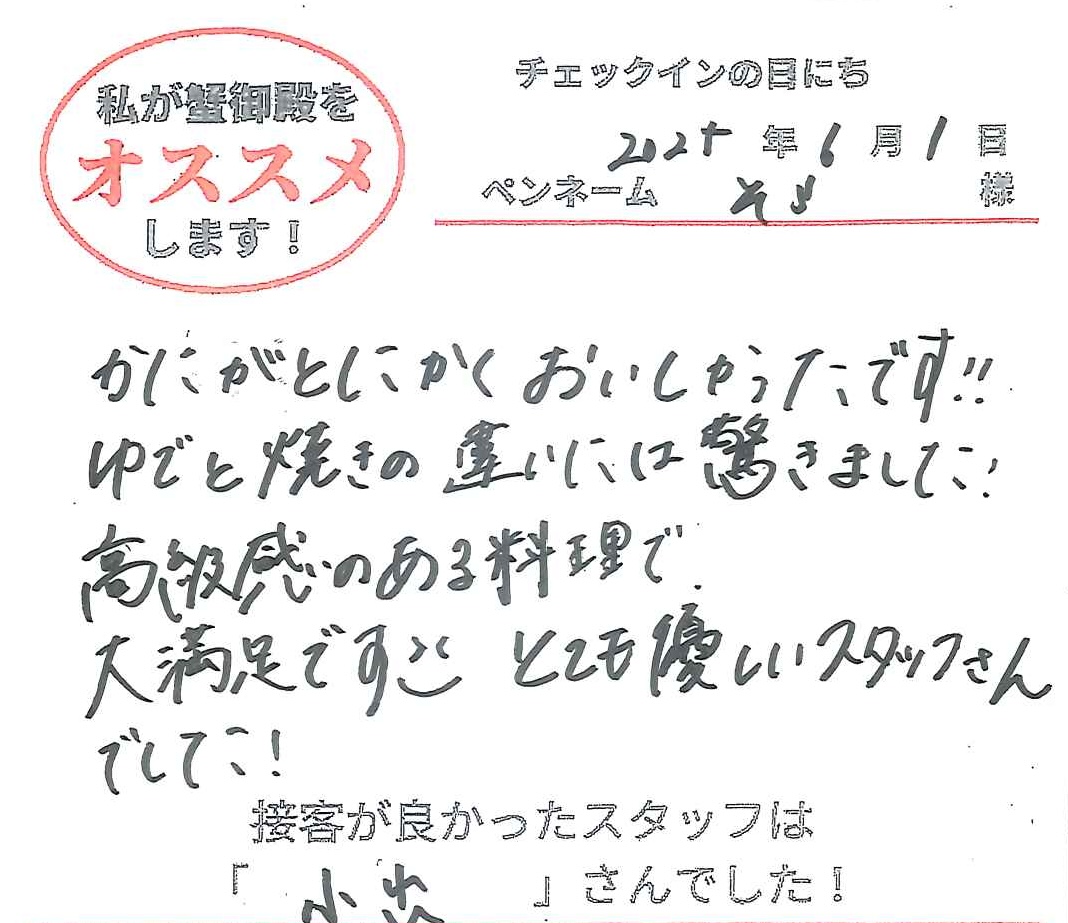 私が蟹御殿を
オススメ
します！
チェックインの日にち
2025年6月1日
ペンネーム そら 様
かにがとにかくおいしかったです!!
ゆでと焼きの違いには驚きました!
高級感のある料理で
大満足です とても優しいスタッフさん
でした!
接客が良かったスタッフは
「小 」さんでした！